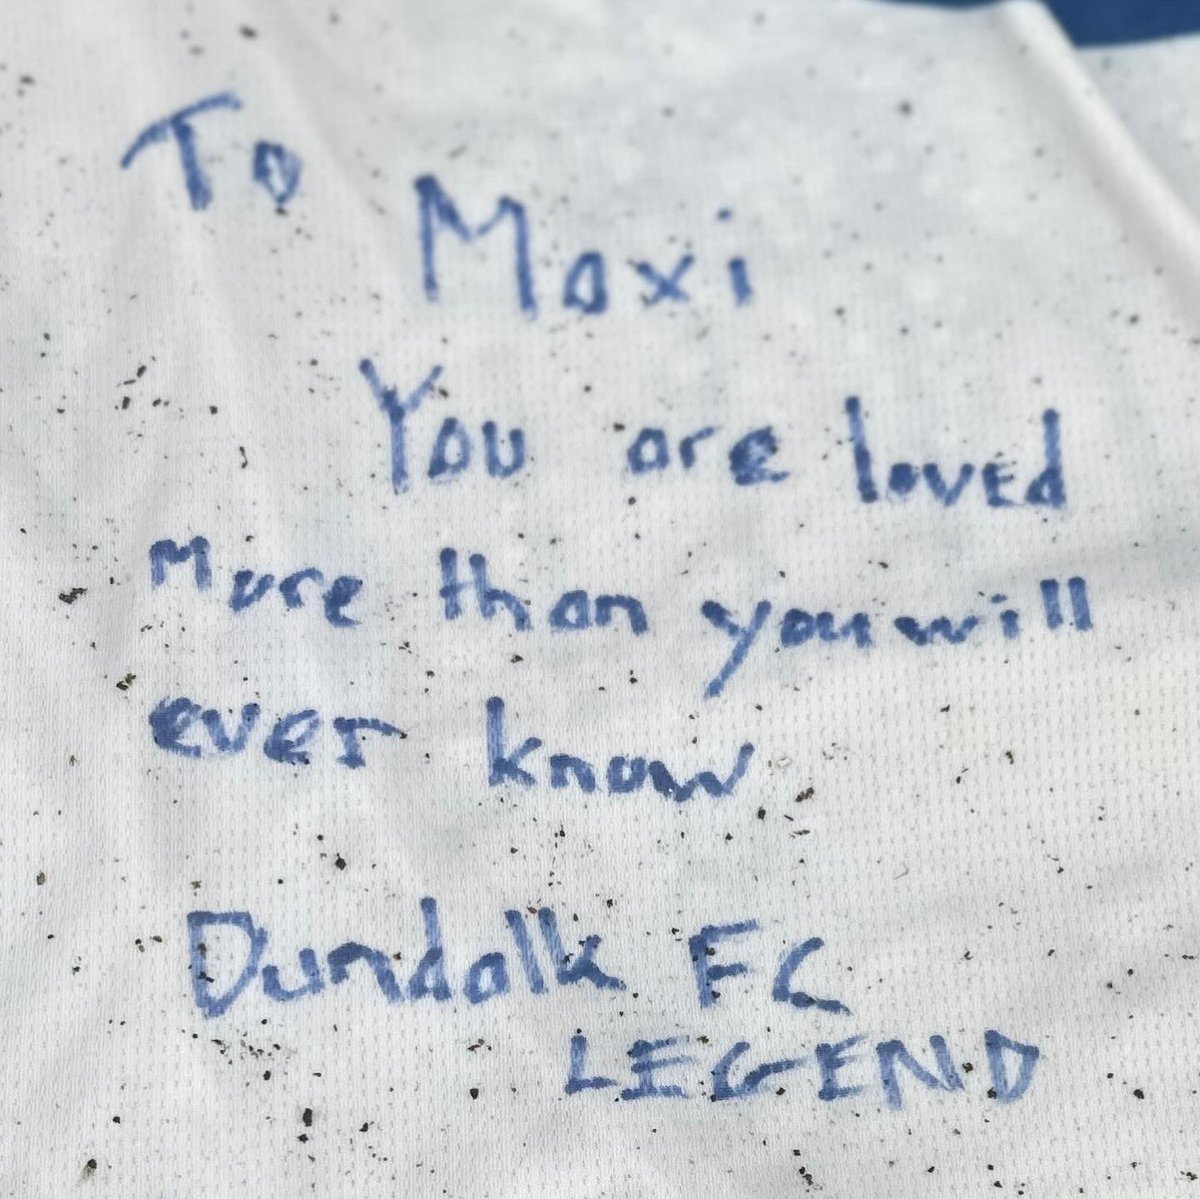 To
Maxi
You are loved
More than you will
ever know
Dundalk FC
LEGEND